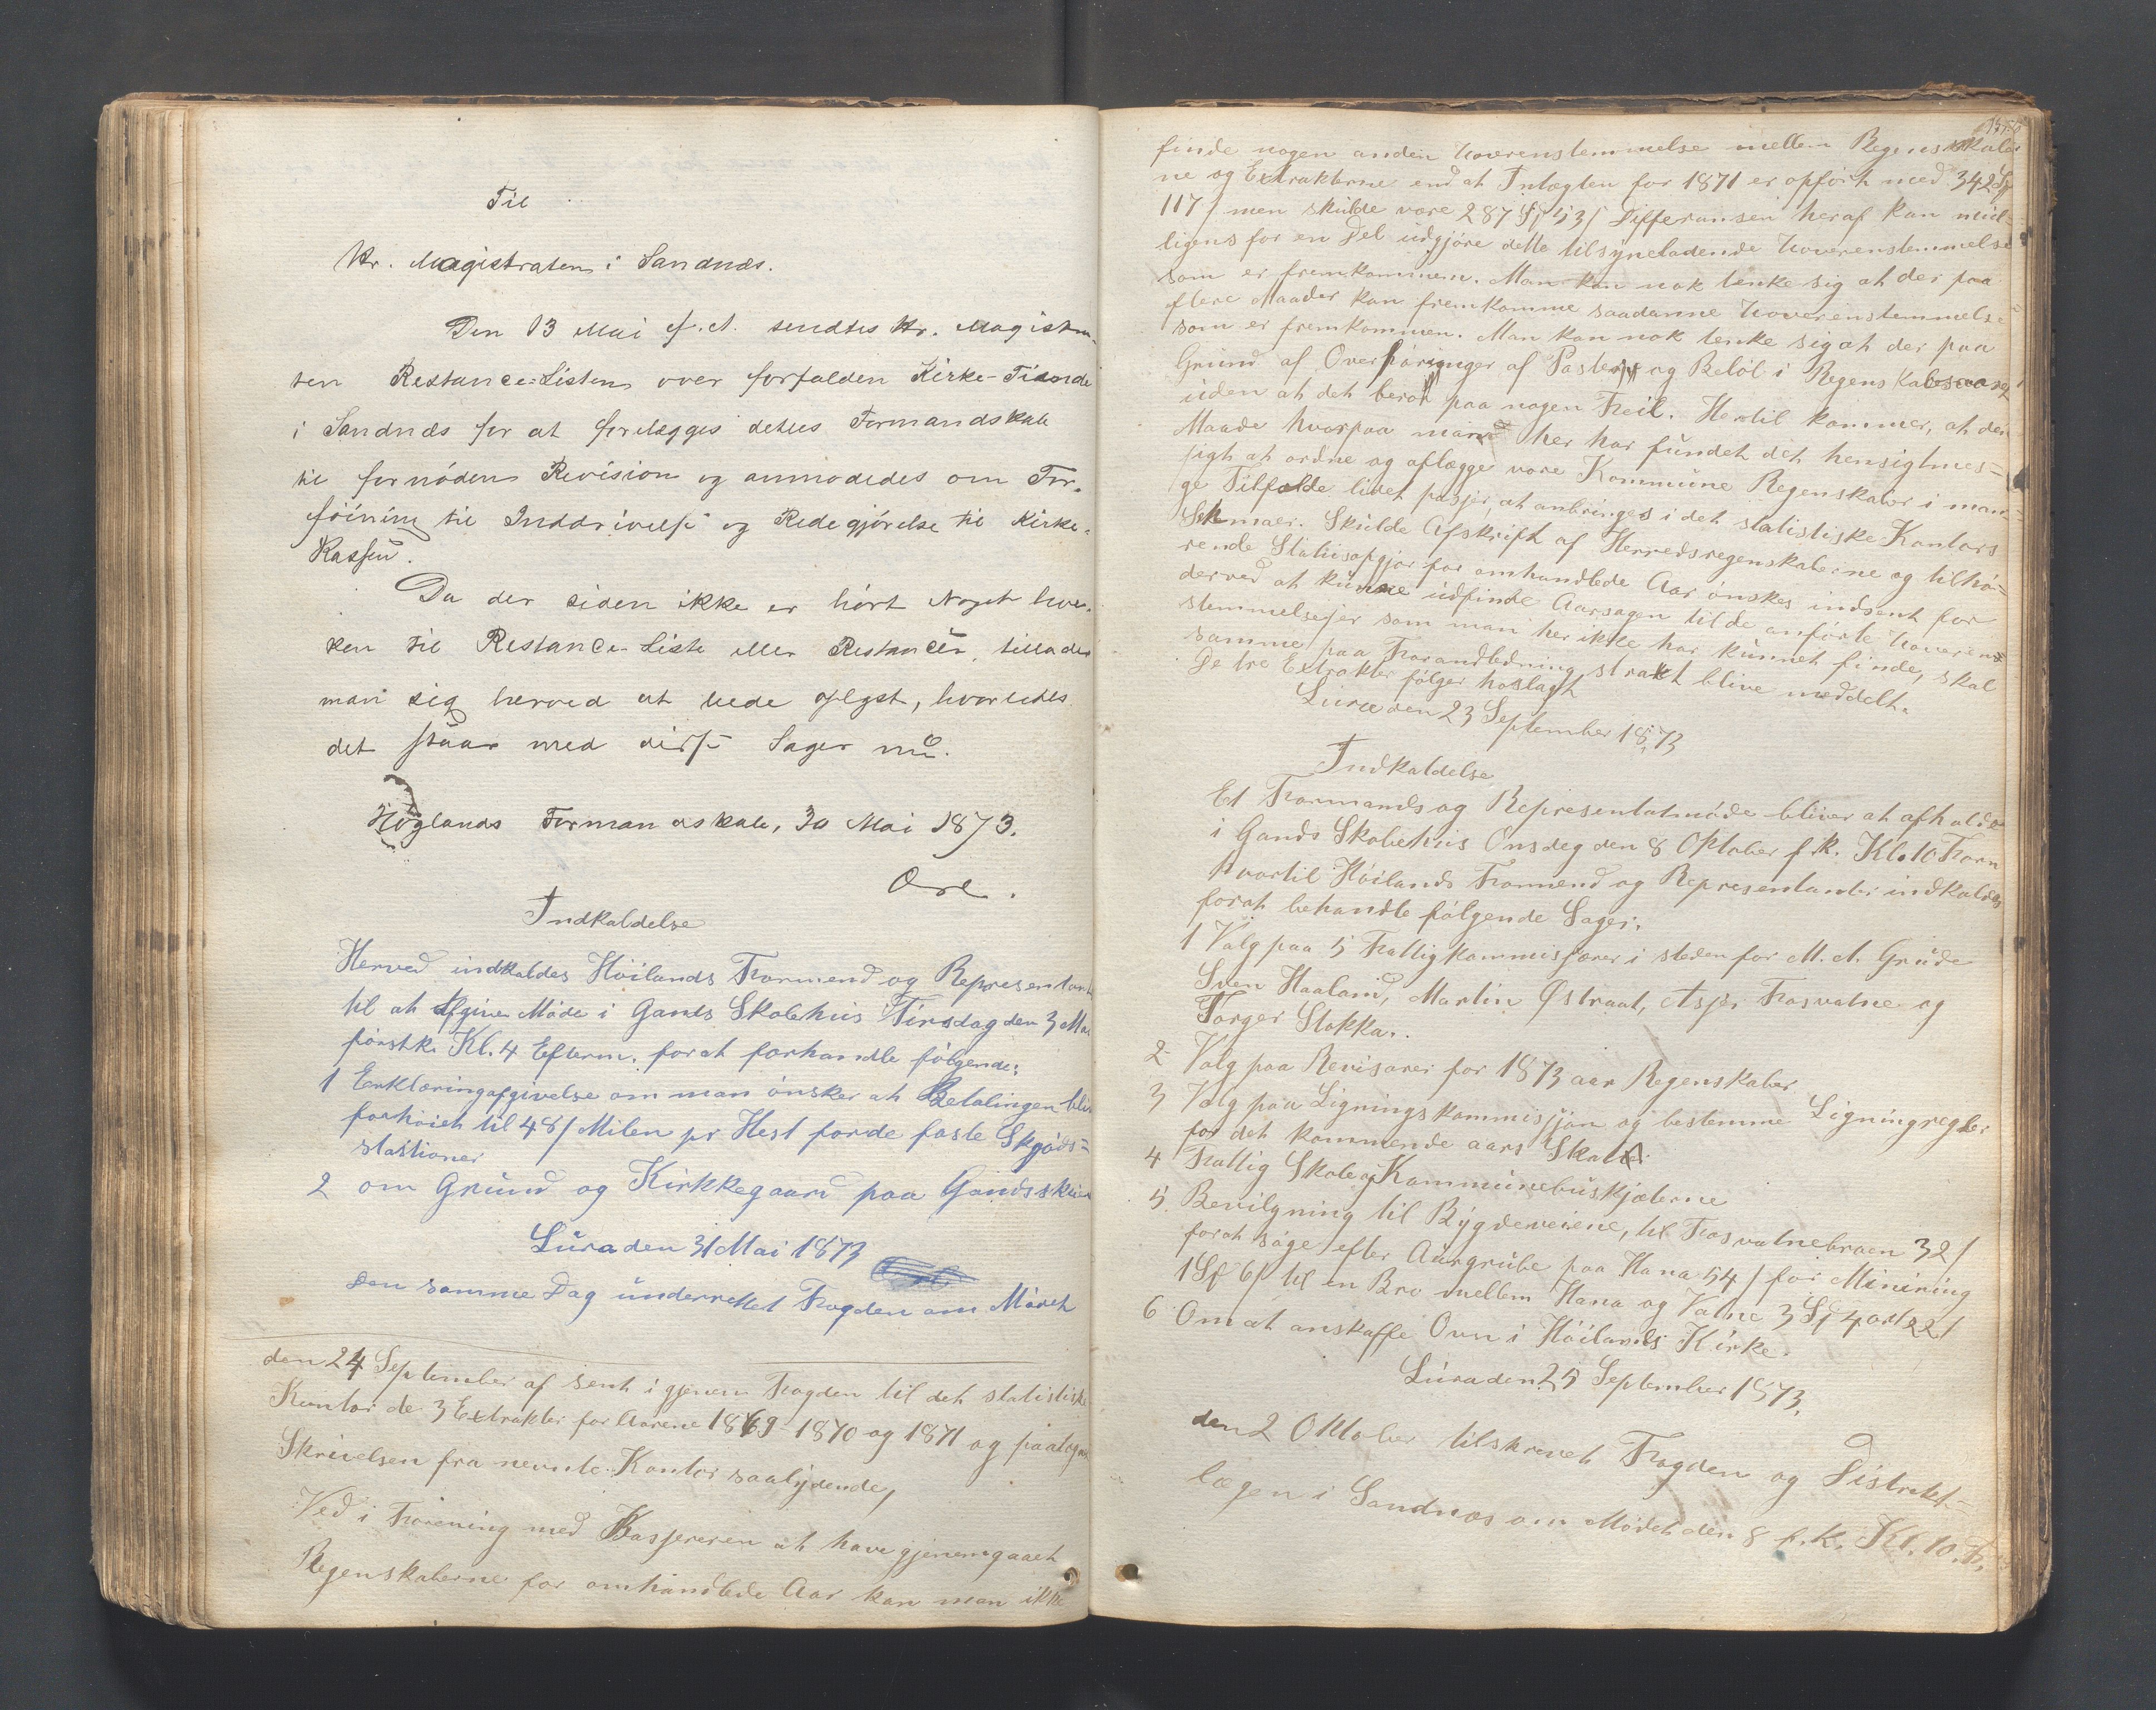 Til
Hr. Magistraten i Sandnæs.
Den 13 Mai d. A. sendtes Hr. Magistra-
ten Restance-Listen over forfalden Kirke-Tiende
i Sandnæs for at forelægges dettes Formandskab
til fornøden Revision og anmodedes om For-
føining til Inddrivelse og Redegjørelse til Kirke-
Kassen.
Da der siden ikke er hørt Noget hver-
ken til Restance-Liste eller Restancer, tillader
man sig herved at bede oplyst, hvorledes
det staar med disse Sager nu.
Høglands Formandskab, 30 Mai 1873.
Indkaldelse
Herved indkaldes Höilands Formend og Representant
til at afgive Möde i Gands Skolehus Tirsdag den 3
förstk. Kl. 4 Efterm. forat forhandle fölgende:
1 Erklæringafgivelse om man önsker at Betalingen bliv
forhöiet til 48 / Milen pr Hest for de faste Skyds=
stastioner
2 om Grund og Kirkkegaard paa Gands
Lura den 31 Mai 1873
den samme Dag underrettet Fogden om Mödet
den 24 September af sent igjenem Fogden til det statistiske
Kontor de 3 Extrakter for Aarene 1869 - 1870 og 1871 og paategne
Skrivelsen fra nevnte Kontor saalydende,
Ved i Forening med Kassereren at have gjenemgaaet
Regenskaberne for omhandlede Aar kan man ikke
finde nogen anden Uoverenstemmelse mellem Regenskaber
ne og Extrakterne end at Intægten for 1871 er opfört med 342 Sp
117 / men skulde vore 287 Sp 53 / Differansen heraf kan mud-
ligens for en Del udgjöre dette tilsyneladende Uoverenstemmelse
som er fremkommen. Man kan nok tenke sig at der paa
flere Maader kan fremkomme saadanne Uoverenstemmelse
som er fremkommen. Man kan nok tenke sig at der paa
Grund af Overföringer af Poster og Belöb i Regenskabs
uden at det beror paa nogen Feil. Hertil kommer, at den
Maade hvorpaa man her har fundet det hensigtmes=
sigt at ordne og aflægge vore Kommune Regenskaber i man=
ge Tilfelde lidet passer, at anbringes i det statistiske Kontors
Skemaer. Skulde Afskrift af Herredsregenskaberne og tilhö=
rende Statusopgjör for omhandlede Aar önskes indsent for
derved at kunne udfinde Aarsagen til de anförte Uoverens
stemmelser som man her ikke har kunnet finde, skal
samme paa Foranledning strakt blive meddelt.
De tre Extrakter fölger hoslagt
Lura den 23 September 1873
Indkaldelse
Et Formands og Representatmöde bliver at afholde
i Gands Skolehus Onsdag den 8 Oktober f. k. Kl. 10 Form
hvortil Höilands Formend og Representanter indkaldes
forat behandle fölgende Sager:
1 Valg paa 5 Fattigkommissærer i steden for M. A. Grude
Sven Haaland, Martin Østraat, Asp. Fosvatne og
Torger Stokka.
2 Valg paa Revisorer for 1873 aar Regenskaber
3 Valg paa Ligningskommissjon og bestemme Ligningregler
for det kommende aars Skatter
4 Fattig Skole og Kommunebuskjæterne
5. Bevilgning til Bygdeveiene, til Fosvatnebroen 32 /
forat söge efter Aurgrube paa Hana 54 / for Minining
1 Sp 6 / til en Bro mellem Hana og Vatne 3 Sp 4 ort 22 /
6 Om at anskaffe Ovn i Höilands Kirke.
Lura den 25 September 1873.
den 2 Oktober tilskrevet Fogden og Distrekt=
lægen i Sandnæs om Mödet den 8 f. k. Kl. 10. F.